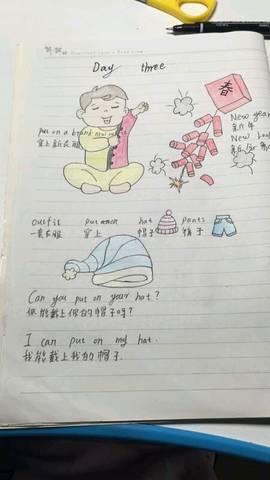 Day three
put on a brand new
穿上新衣服
春
New year
New
outfit put on hat pants
一套衣服 穿上 帽子 裤子
Can you put on your hat?
你能戴上你的帽子吗?
I can put on my hat.
我能戴上我的帽子.